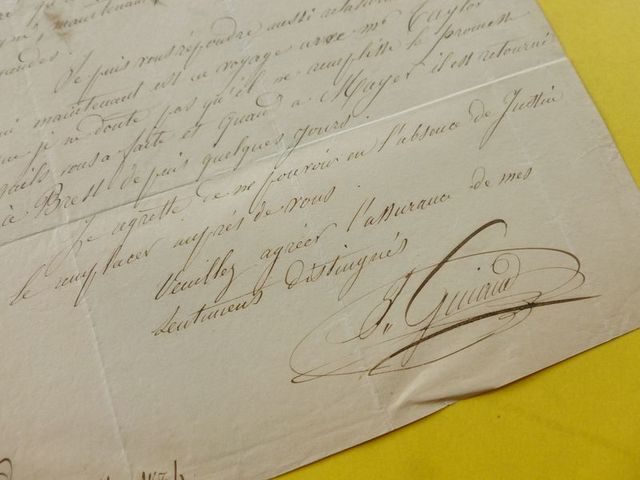 maintenant
Je puis vous répondre aussi
maintenant est en voyage avec Mr Taylor
que je ne doute pas qu'il ne remplisse la promesse
qu'il vous a faite et quand a Mayer il est retourné
à Brest depuis quelques jours.
Je regrette de ne pouvoir en l'absence de Justin
le remplacer auprès de vous.
Veuillez agréer l'assurance de mes
sentimens distingués